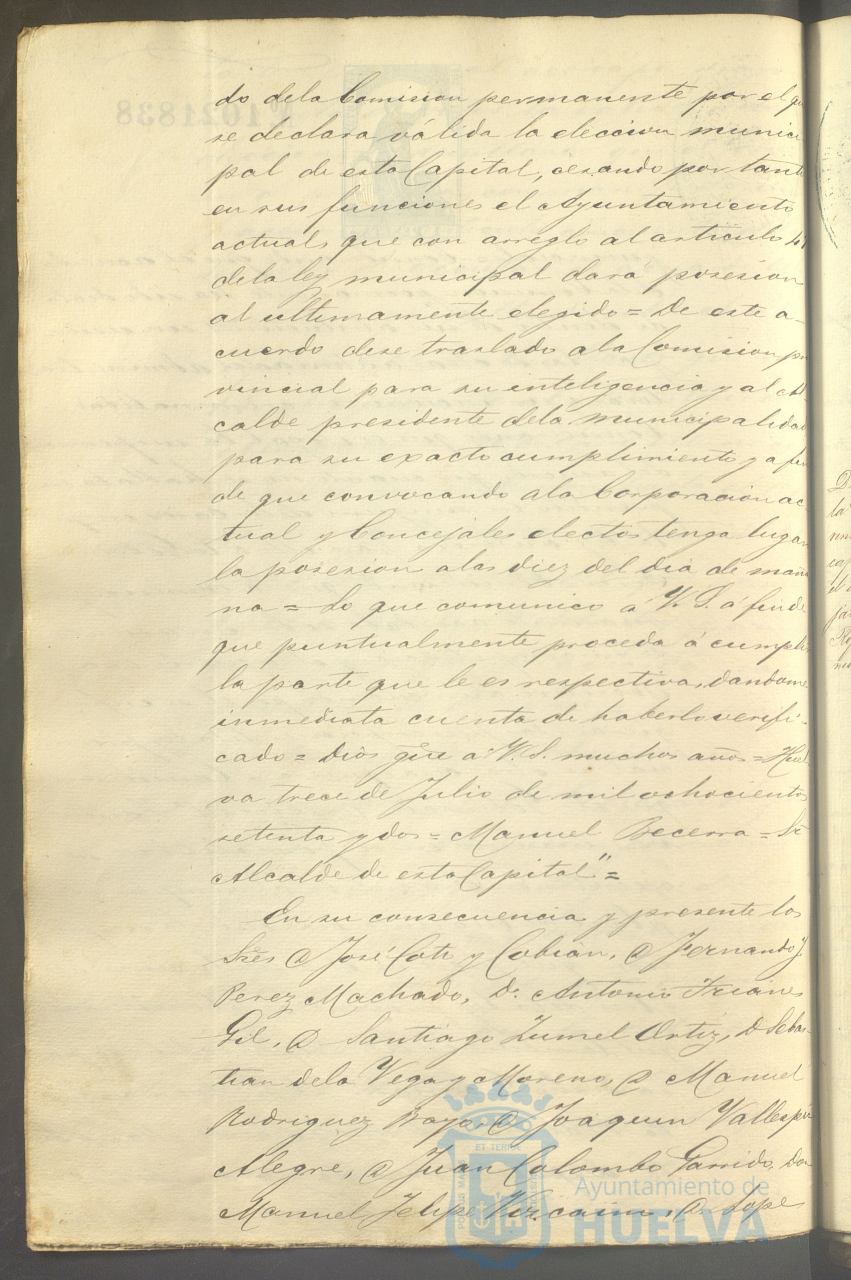 do dela Comision permanente por el qu
se declara válida la eleccion munici
pal de esta Capital, cesando por tanto
en sus funciones el Ayuntamiento
actual, que con arreglo al articulo 47
dela ley municipal dará posesion
al ultimamente elegido = De este a-
cuerdo dese traslado ala Comision pro
vincial para su inteligencia y al Al-
calde presidente dela municipalidad
para su exacto cumplimiento y a fin
de que convocando ala Corporacion ac-
tual y Concejales electos tenga lugar
la posesion alas diez del dia de maña
na = Lo que comunico á V. S. á fin de
que puntualmente proceda á cumplir
la parte que le es respectiva, dandome
inmediata cuenta de haberlo verifi-
cado = Dios gue a V. S. muchos años = Huel
va trece de Julio de mil ochocientos
setenta y dos = Manuel Becerra = Sr
Alcalde de esta Capital" =
En su consecuencia y presente los
Sres D José Coto y Cobian, D Fernando J.
Perez Machado, Dn Antonio Trianes
Gil, D Santiago Zumel Ortiz, D Sebas-
tian dela Vega y Moreno, D Manuel
Rodriguez Bayo, D Joaquin Vallespin
Alegre, D Juan Colombo Garrido, Don
Manuel Felipe Vizcaino, D Lope
1021838
Ayuntamiento de
HUELVA